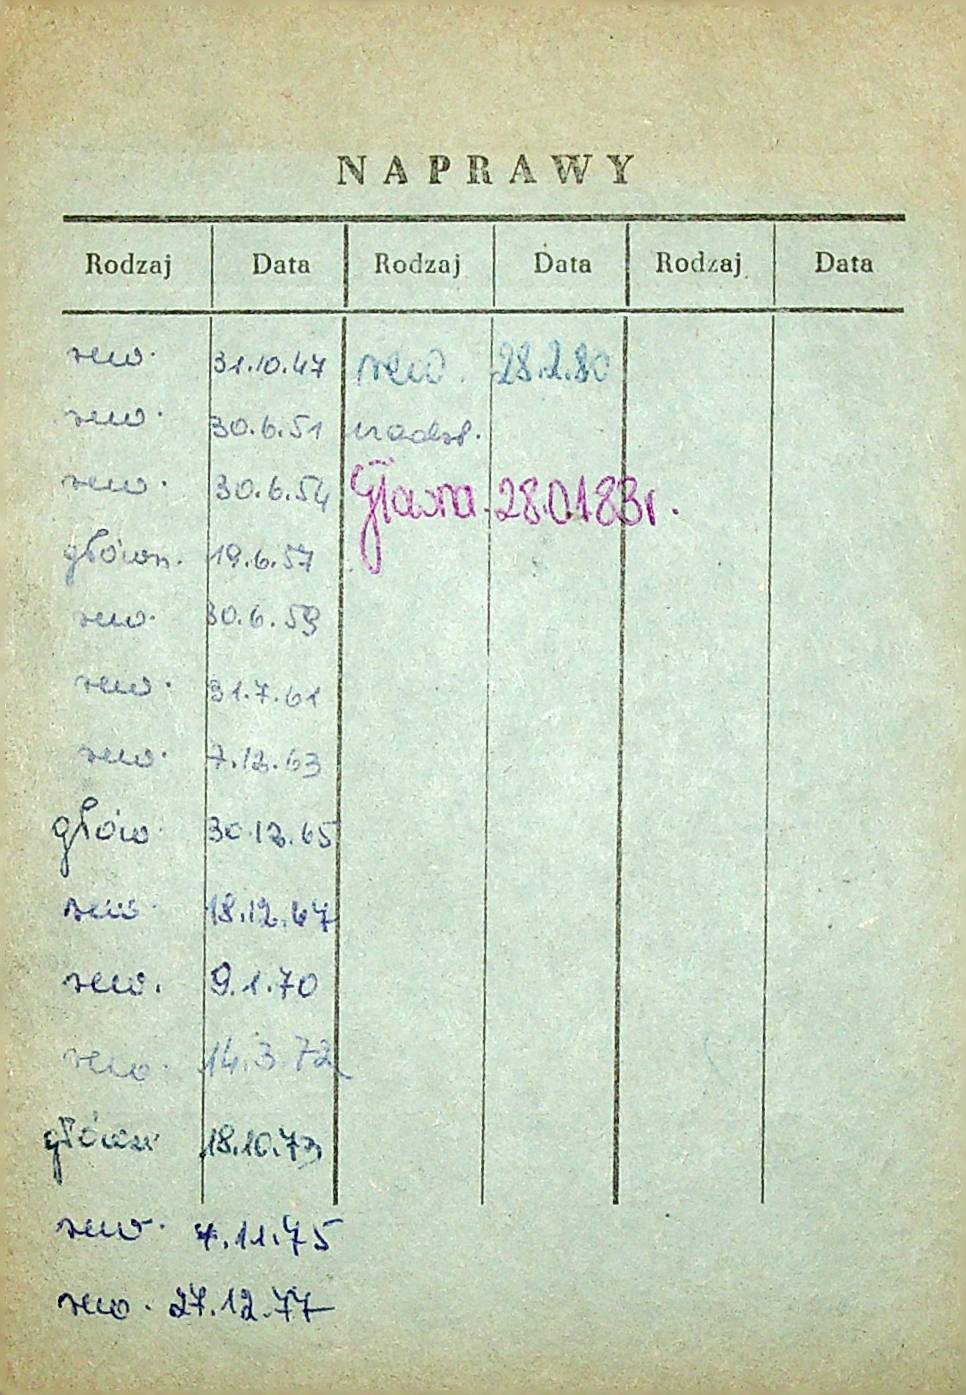 NAPRAWY
Rodzaj Data Rodzaj Data Rodzaj Data
rew. 31.10.47 rew. 28.2.80
rew. 30.6.51 nadzf.
rew. 30.6.54 Główna. 28.01.83r.
główn. 19.6.57
rew. 30.6.59
rew. 31.7.61
rew. 7.12.63
głów. 30.12.65
rew. 18.12.67
rew. 9.1.70
rew. 14.3.72
główn 18.10.73
rew. 7.11.75
rew. 27.12.77